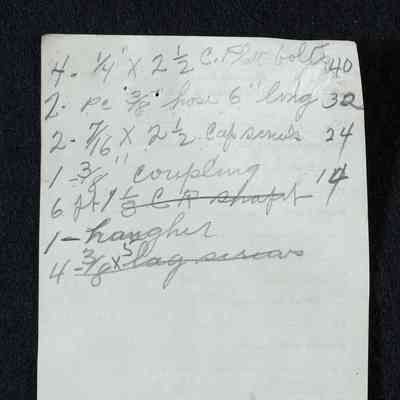 4 - 1/4" x 2 1/2 C. Plat bolts 40
2 - pc 3/8" hose 6" long 32
2 - 7/16 x 2 1/2 Cap screws 24
1 3/8" coupling 14
6 ft 1 1/8 C R shaft
1 - hangher
4 - 3/8 x 5 lag screws